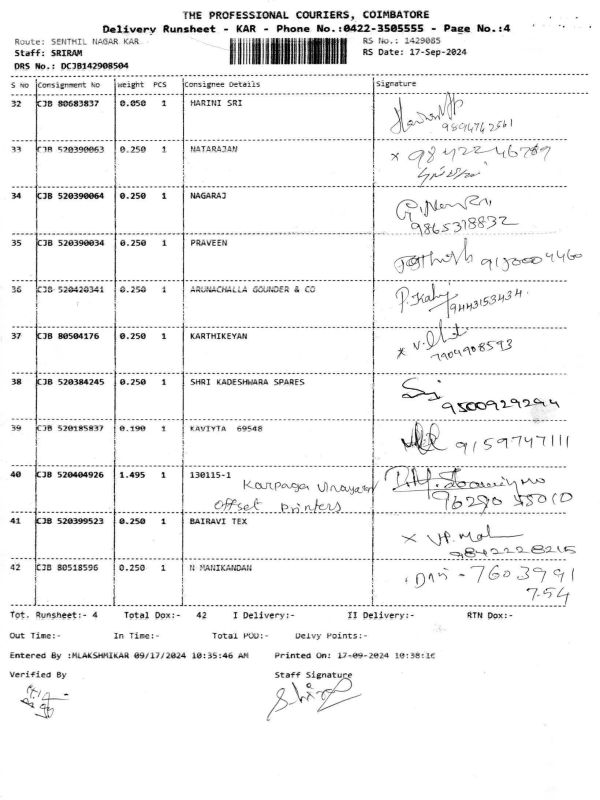 THE PROFESSIONAL COURIERS, COIMBATORE
Delivery Runsheet - KAR - Phone No.:0422-3505555 - Page No.:4
Route: SENTHIL NAGAR KAR
RS No.: 1429085
Staff: SRIRAM
RS Date: 17-Sep-2024
DRS No.: DCJB142908504
S No Consignment No Weight PCS Consignee Details Signature
32 CJB 80683837 0.050 1 HARINI SRI
9894762561
33 CJB 520390063 0.250 1 NATARAJAN
x 9842246789
34 CJB 520390064 0.250 1 NAGARAJ
9865318832
35 CJB 520390034 0.250 1 PRAVEEN
9150004460
36 CJB 520420341 0.250 1 ARUNACHALLA GOUNDER & CO
9443153434
37 CJB 80504176 0.250 1 KARTHIKEYAN
x
7904908593
38 CJB 520384245 0.250 1 SHRI KADESHWARA SPARES
9500929294
39 CJB 520185837 0.190 1 KAVIYTA 69548
9159747111
40 CJB 520404926 1.495 1 130115-1
Karpaga Vinayagar
Offset Printers
41 CJB 520399523 0.250 1 BAIRAVI TEX
x
9842228215
42 CJB 80518596 0.250 1 N MANIKANDAN
7603991
754
Tot. Runsheet:- 4 Total Dox:- 42 I Delivery:- II Delivery:- RTN Dox:-
Out Time:- In Time:- Total POD:- Delvy Points:-
Entered By :MLAKSHMIKAR 09/17/2024 10:35:46 AM Printed On: 17-09-2024 10:38:16
Verified By Staff Signature